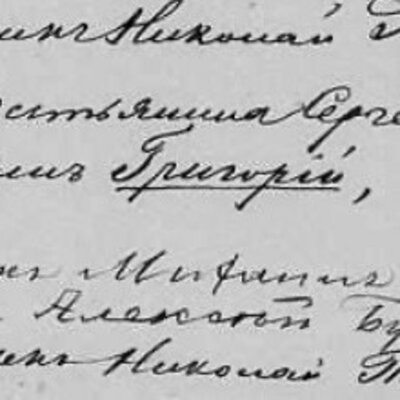 инъ Николай
стьянина Серге
инъ Григорій,
инъ Михаилъ
Алексѣй Бу
инъ Николай